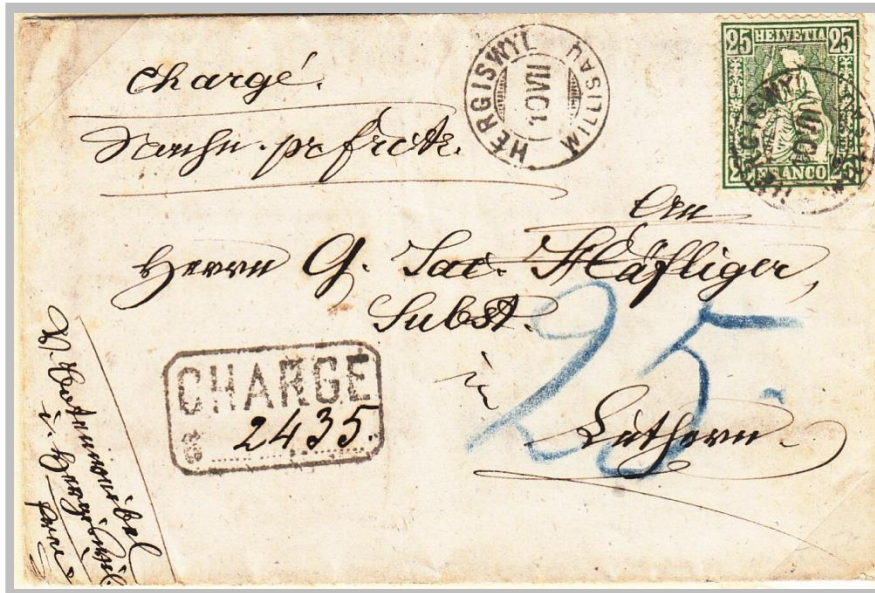 Chargé.
HERGISWYL WILLISAU
10 VII
25 HELVETIA 25
25 FRANCO 25
HERGISWYL
An
Herrn G. Jac. Häfliger,
Subst.
in
25.
Luthern.
CHARGÉ
2435.